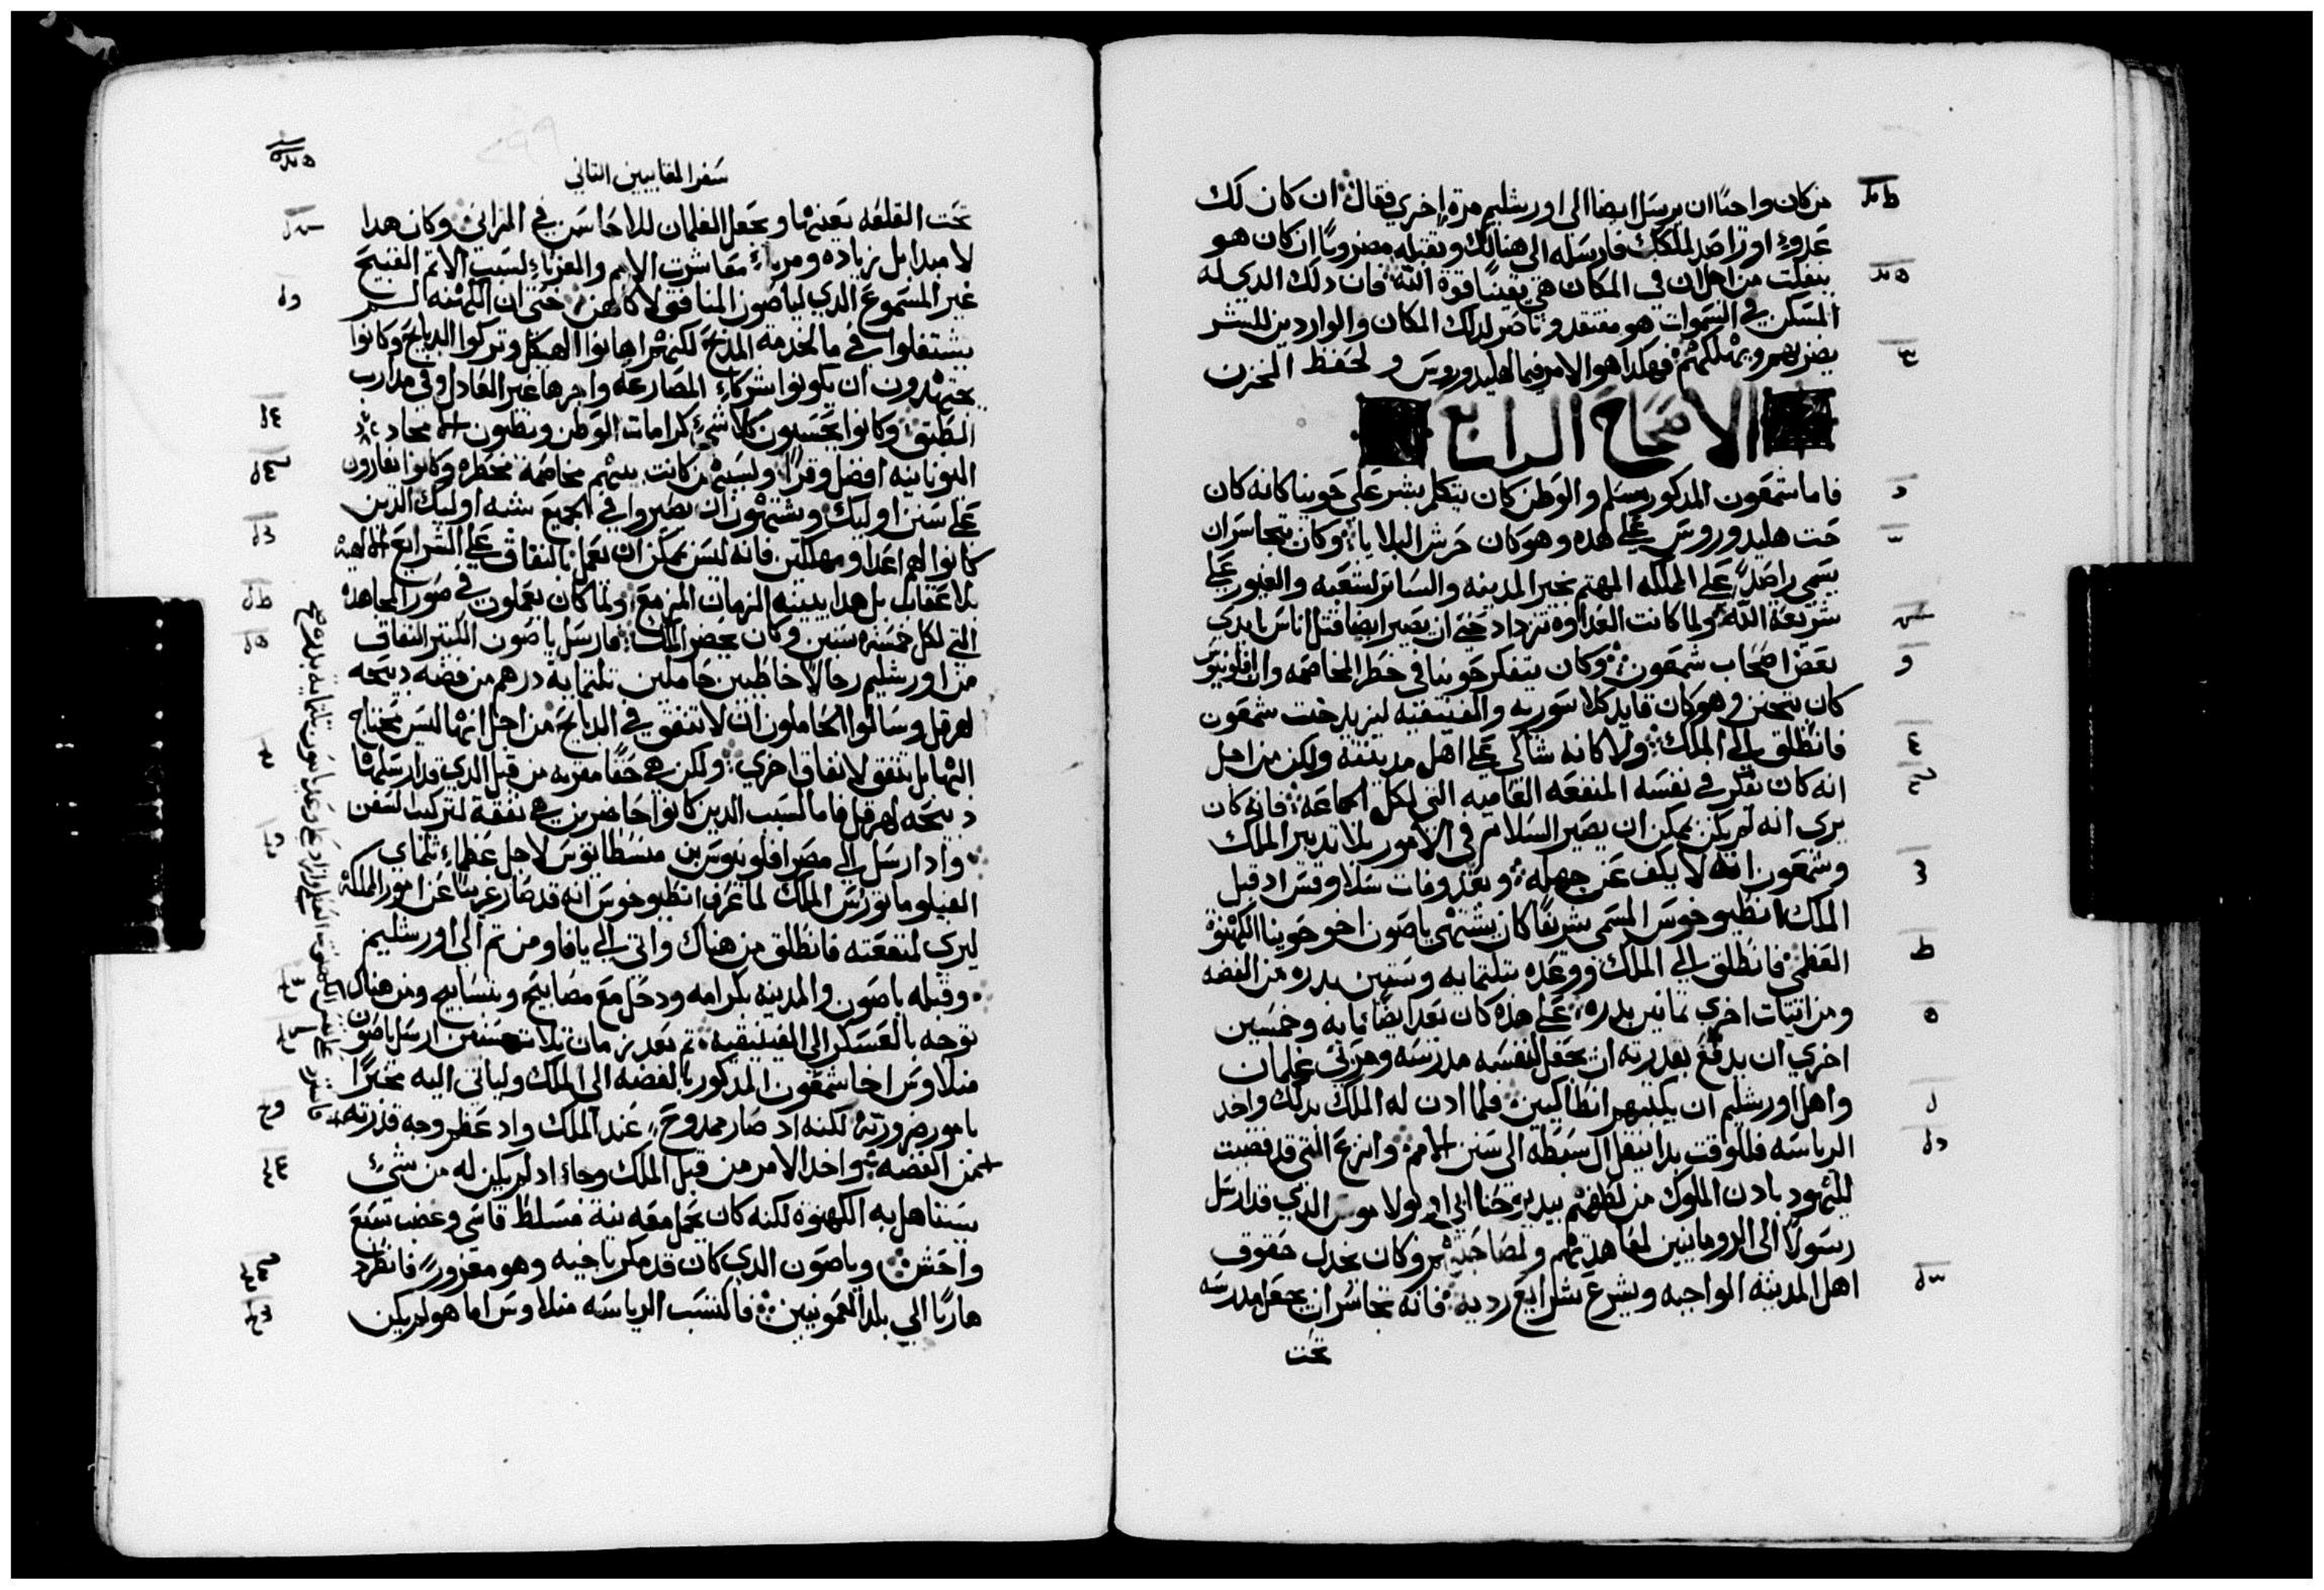 من كان واجبًا ان يرسل ايضا الى اورشليم مرة اخري فقال ان كان لك
عدوءٍ او راصد لملكك فارسله الى هنالك وتقبله مضروبًا ان كان هو
ينفلت من اجل ان في المكان هي يقينًا قوة الله فان دلك الدي له
المسكن في السموات هو مفتقد وناصر لدلك المكان والواردين للشر
يضربهم ويهلكهم فهكدا هو الامر فيما لهليدوروس ولحفظ المخزن
الاصحاح الرابع
فاما شمعون المدكور مسلم والوطن كان يتكلم بشر علي حونيا كانه كان
حت هليدوروس علي هده وهو كان حرش البلايا وكان يتجاسر ان
يسمي راصدًا علي المملكه المهتم بخير المدينه والساتر لشعبه والغيور علي
شريعة الله ولما كانت العداوه تزداد حتي ان يصير ايضا قتل الناس بايدي
بعض اصحاب شمعون وكان يتفكر حونيا في خطر المخاصمه وان افلونيوس
كان يتجنن وهو كان قايد كلاسوريه والفينيقيه ليزيد خبت شمعون
فانطلق الي الملك ولا كانه شاكي علي اهل مدينته ولكن من اجل
انه كان يفكر في نفسه المنفعه العاميه التي لكل الجماعه فانه كان
يري انه لم يكن يمكن ان يصير السلام في الامور بلا تدبير الملك
وشمعون انه لا يكف عن جهله وبعد وفات سلاوقس اد قبل
الملك انطيوخوس المسمي شريفًا كان يشتهي ياصون اخو حونيا الكهنوة
العظمي فانطلق الي الملك ووعده بتلتمايه وستين بدره من الفضه
ومن اتيات اخري تمانين بدره علي هده كان يعد ايضًا بمايه وخمسين
اخري ان يدفع بقدرته ان يجعل لنفسه مدرسه ومربي غلمان
واهل اورشليم ان يكتبهم انطاكيين فلما ادن له الملك بدلك واخد
الرياسه فللوقت بدا ينقل ال سبطه الى سنن الامم وانزع التي قد قضيت
لليهود بادن الملوك من لطفهم بيد يوحنا ابي اوبولاموس الدي قد ارسل
رسولًا الى الرومانيين لمعاهدتهم ولمصاحبتهم وكان يخدل حقوق
اهل المدينه الواجبه ويشرع شرايع رديه فانه تجاسر ان يجعل مدرسه
تحت
سفر المقابيين التاني
تحت القلعه بعينها ويجعل الغلمان للاحاسن في المزاني وكان هدا
لا مبدا بل زياده ومرباءِ معاشرت الامم والغرباءِ لسبب الاتم القبيح
غير المسموع الدي لياصون المنافق لا كاهن حتي ان الكهنه ليس
يشتغلوا في ما لخدمه المدبح لكنهم اهانوا الهيكل وتركوا الدبايح وكانوا
يجتهدون ان يكونوا شركاءِ المصارعه واجرها غير العادل وفي مدارب
الطبق وكانوا يحسبون كلا شيءٍ كرامات الوطن ويظنون امجاد
اليونانيه افضل وقرًا ولسببهم كانت بينهم مخاصمة مخطره وكانوا يغارون
علي سنن اوليك ويشتهون ان يصيروا في الجميع شبه اوليك الدين
كانوا لهم اعدا ومهلكين فانه ليس يمكن ان يعمل بالنفاق علي الشرايع الالهيه
بلا عقاب بل هدا يبينه الزمان المزمع ولما كان يعملون في صور المجاهده
التي لكل خمسه سنين وكان يحضر الملك فارسل ياصون الكتير النفاق
من اورشليم رجالًا خاطيين حاملين تلتماية درهم من فضه دبيحه
لهرقل وسالوا الحاملون ان لا تنفق في الدبايح من اجل انها ليس تحتاج
اليها بل تنفق لانفاق اخري ولكن هي حقًا مقربه من قبل الدي قد ارسلها
دبيحه لهرقل فاما لسبب الدين كانوا حاضرين هي نفقة لتركيب السفن
واد ارسل الي مصر افلونيوس بن منسطايوس لاجل عظماءِ تلماي
الفيلوماتورس الملك لما عرف انطيوخوس انه قد صار غريبًا عن امور المملكه
ليري لمنفعته فانطلق من هناك واتي الي يافا ومن تم الى اورشليم
وقبله ياصون والمدينه بكرامه ودخل مع مصابيح وبتسابيح ومن هناك
توجه بالعسكر الى الفينيقيه تم بعد زمان تلات سنين ارسل ياصون
منلاوس اخا شمعون المدكور بالفضه الى الملك ولياتي اليه مخبرًا
بامور ضرورية لكنه اد صار ممدوحًا عند الملك واد عظم وجه قدرته
تمن الفضه واخد الامر من قبل الملك وجاءِ اد لم يكن له من شيءٍ
يستاهل به الكهنوه لكنه كان يحمل معه نية متسلط قاسي وغضب سبع
واحش وياصون الدي كان قد مكر باخيه وهو مغرورًا فانطرد
هاربًا الي بلد العمونيين فاكتسب الرياسه منلاوس اما هو لم يكن